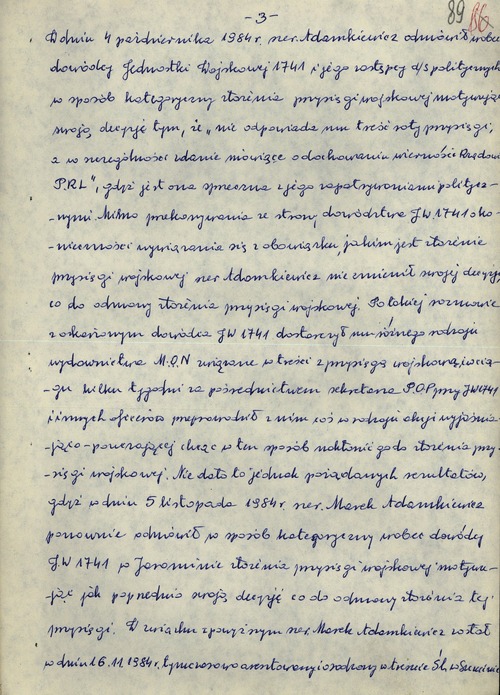 -3-
89 86
W dniu 4 października 1984r. szer. Adamkiewicz odmówił wobec
dowódcy Jednostki Wojskowej 1741 i jego zastępcy d/s politycznych
w sposób kategoryczny złożenia przysięgi wojskowej motywując
swoją decyzję tym, że „nie odpowiada mu treść roty przysięgi,
a w szczególności zdanie mówiące o dochowaniu wierności Rządowi
PRL", gdyż jest ona sprzeczna z jego zapatrywaniami politycz-
-nymi. Mimo przekonywania ze strony dowództwa JW 1741 o ko-
-nieczności wywiązania się z obowiązku, jakim jest złożenie
przysięgi wojskowej szer Adamkiewicz nie zmienił swojej decyzji,
co do odmowy złożenia przysięgi wojskowej. Po takiej rozmowie
z oskarżonym dowódca JW 1741 dostarczył mu różnego rodzaju
wydawnictwa M.O.N związane w treści z przysięgą wojskową, i w cią-
-gu kilku tygodni za pośrednictwem sekretarza P.O.P przy JW 1741
i innych oficerów przeprowadził z nim coś w rodzaju akcji wyjaśnia-
-jąco-pouczającej chcąc w ten sposób nakłonić go do złożenia przy-
-sięgi wojskowej. Nie dało to jednak pożądanych rezultatów,
gdyż w dniu 5 listopada 1984r. szer. Marek Adamkiewicz
ponownie odmówił w sposób kategoryczny wobec dowódcy
J.W 1741 w Jarominie złożenia przysięgi wojskowej motywu-
-jąc jak poprzednio swoją decyzję co do odmowy złożenia tej
przysięgi. W związku z powyższym szer. Marek Adamkiewicz został
w dniu 16.11.1984r. tymczasowo aresztowany i osadzony w areszcie Śl. w Szczecinie